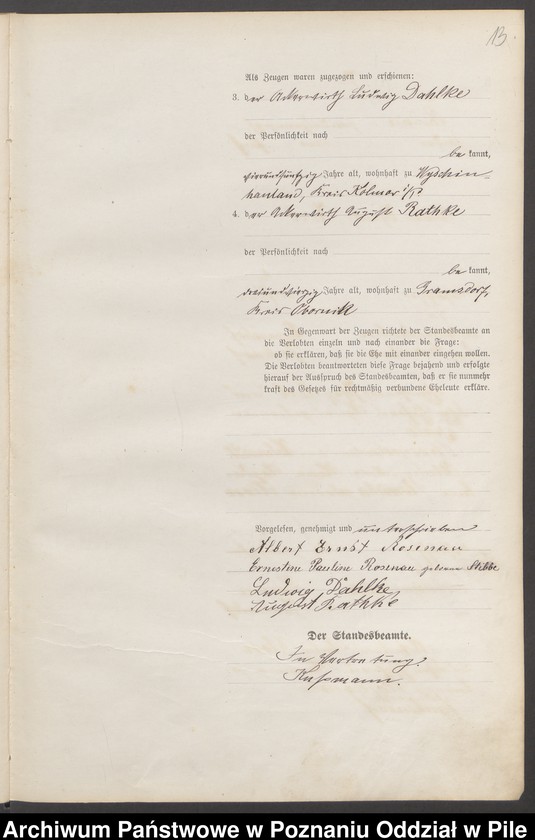 13.
Als Zeugen waren zugezogen und erschienen:
3. der Ackerwirth Ludwig Dahlke
der Persönlichkeit nach
be kannt,
vierundfünfzig Jahre alt, wohnhaft zu Wyschin-
hauland, Kreis Kolmar i/P
4. der Ackerwirth August Rathke
der Persönlichkeit nach
be kannt,
dreiundvierzig Jahre alt, wohnhaft zu Gramsdorf,
Kreis Obornik
In Gegenwart der Zeugen richtete der Standesbeamte an
die Verlobten einzeln und nach einander die Frage:
ob sie erklären, daß sie die Ehe mit einander eingehen wollen.
Die Verlobten beantworteten diese Frage bejahend und erfolgte
hierauf der Ausspruch des Standesbeamten, daß er sie nunmehr
kraft des Gesetzes für rechtmäßig verbundene Eheleute erkläre.
Vorgelesen, genehmigt und unterschrieben
Albert Ernst Rosenau
Ernestine Pauline Rosenau geborene Stibbe
Ludwig Dahlke
August Rathke
Der Standesbeamte.
In Vertretung.
Archiwum Państwowe w Poznaniu Oddział w Pile